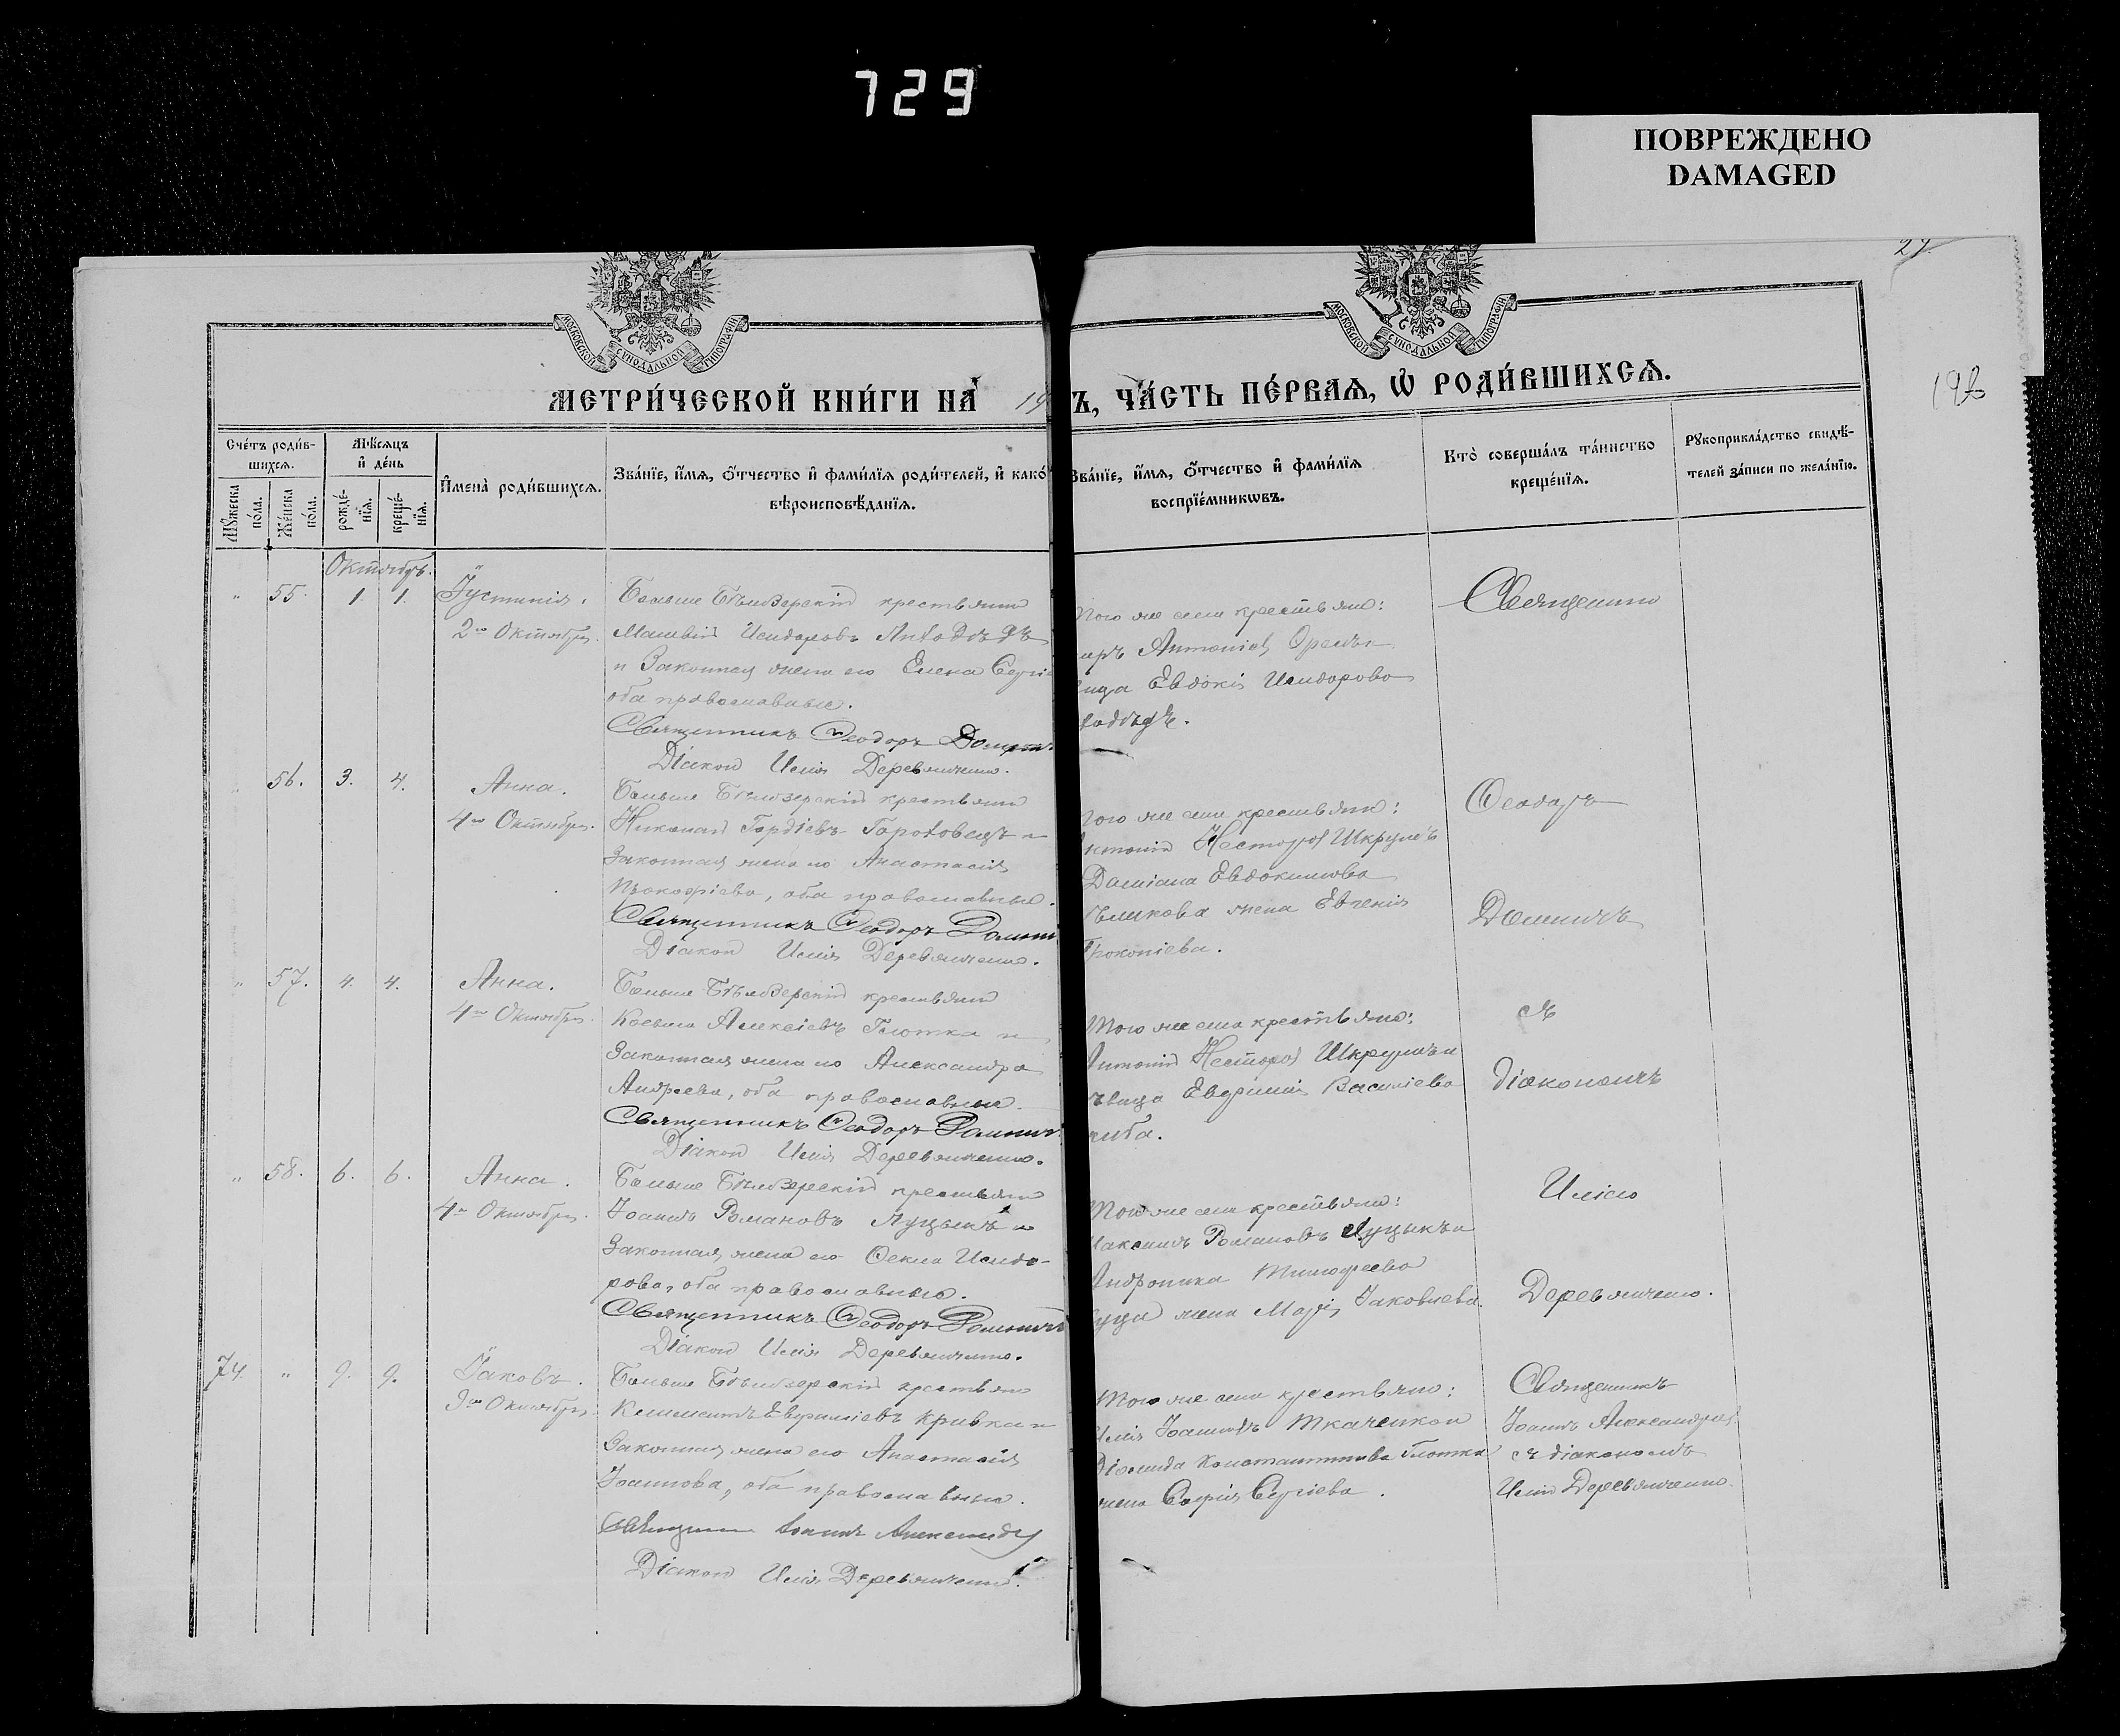 729
ПОВРЕЖДЕНО
DAMAGED
27.
МОСКОВСКОЙ СѴНОДАЛЬНОЙ ТИПОГРАФІИ
МОСКОВСКОЙ СѴНОДАЛЬНОЙ ТИПОГРАФІИ
МЕТРИ́ЧЕСКОЙ КНИ́ГИ НА 19
Ъ, ЧА́СТЬ ПЕ́РВАѦ, Ѡ РОДИ́ВШИХСѦ.
Сче́тъ роди́в-
шихсѧ.
Мꙋжеска по́ла.
Же́нска по́ла.
Мѣ́сѧцъ
и҆ де́нь
рожде́-
нїѧ.
креще́-
нїѧ.
И҆мена̀ роди́вшихсѧ.
Зва́нїе, и҆́мѧ, ѻ҆́тчество и҆ фами́лїѧ роди́телей, и҆ како́
вѣроисповѣ́данїѧ.
Зва́нїе, и҆́мѧ, ѻ҆́тчество и҆ фами́лїѧ
воспрїе́мникѡвъ.
Кто̀ соверша́лъ та́инство
креще́нїѧ.
Рꙋкоприкла́дство свидѣ́-
телей за́писи по жела́нїю.
Октябрь.
" 55. 1. 1. Іустинія.
2го Октября.
Больше Бѣлозерскій крестьянин
Матвій Исидоровъ
и Законная жена его Елена Сергіе
оба православные.
Священникъ Ѳеодоръ
Діакон Илія Деревянченко.
Того же села крестьяне:
Антоніев
Евдокія Исидорова
Священник
56. 3. 4. Анна.
4го Октября.
Больше Бѣлозерскій крестьянин
Николай Гордіевъ Гороховецъ и
Законная жена его Анастасія
Прокофіева, оба православные.
Священникъ Ѳеодоръ
Діакон Илія Деревянченко.
того же села крестьяне:
Антоній Несторов
Даміана Евдокимова
жена Евгенія
Прокопіева.
Ѳеодоръ
" 57. 4. 4. Анна.
4го Октября.
Больше Бѣлозерскій крестьянин
Косьма Алексіевъ Глотка и
Законная жена его Александра
Андреева, оба православные.
Священникъ Ѳеодоръ
Діакон Илія Деревянченко.
Того же села крестьяне:
Антоній Несторов
Евфимія Василіева
съ
діакономъ
" 58. 6. 6. Анна.
4го Октября.
Больше Бѣлозерскій крестьянин
Іоаннъ Романовъ Луцыкъ и
Законная жена его Ѳекла Исидо-
рова, оба православные.
Священникъ Ѳеодоръ
Діакон Илія Деревянченко.
Того же села крестьяне:
Максимъ Романовъ Луцыкъ и
Андроника Тимофеева
жена Марія Іаковлева.
Иліею
Деревянченко.
74. " 9. 9. Іаковъ.
9го Октября.
Больше Бѣлозерскій крестьянин
Климентъ Евфиміевъ Кривка и
Законная жена его Анастасія
Іоаннова, оба православные.
Священник Іоаннъ Александров
Діакон Илія Деревянченко.
Того же села крестьяне:
Илія Іоанновъ Ткаченко и
Константинова Глотка
жена Софія Сергіева.
Священникъ
Іоаннъ Александров
съ діакономъ
Иліею Деревянченко.